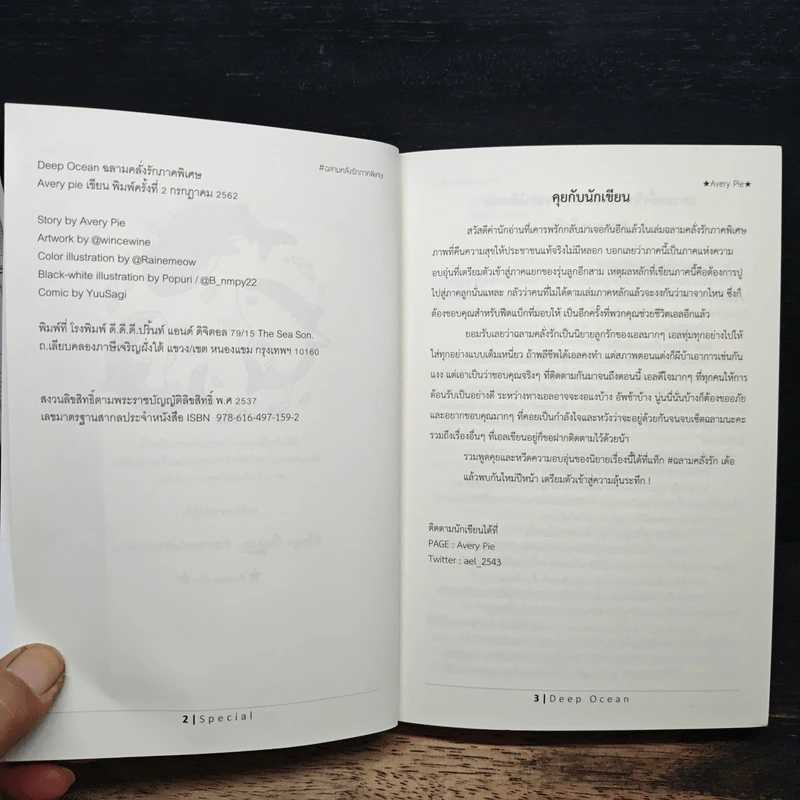 Deep Ocean ฉลามคลั่งรักภาคพิเศษ
#ฉลามคลั่งรักภาคพิเศษ
Avery pie เขียน พิมพ์ครั้งที่ 2 กรกฎาคม 2562
Story by Avery Pie
Artwork by @wincewine
Color illustration by @Rainemeow
Black-white illustration by Popuri / @B_nmpy22
Comic by YuuSagi
พิมพ์ที่ โรงพิมพ์ ดี.ดี.ดี.ปริ้นท์ แอนด์ ดิจิตอล 79/15 The Sea Son.
ถ.เลียบคลองภาษีเจริญฝั่งใต้ แขวง/เขต หนองแขม กรุงเทพฯ 10160
สงวนลิขสิทธิ์ตามพระราชบัญญัติลิขสิทธิ์ พ.ศ 2537
เลขมาตรฐานสากลประจำหนังสือ ISBN 978-616-497-159-2
2 | Special
★Avery Pie★
คุยกับนักเขียน
สวัสดีค่านักอ่านที่เคารพรักกลับมาเจอกันอีกแล้วในเล่มฉลามคลั่งรักภาคพิเศษ
ภาพที่คืนความสุขให้ประชาชนแท้จริงไม่มีหลอก บอกเลยว่าภาคนี้เป็นภาคแห่งความ
อบอุ่นที่เตรียมตัวเข้าสู่ภาคแยกของรุ่นลูกอีกสาม เหตุผลหลักที่เขียนภาคนี้คือต้องการปู
ไปสู่ภาคลูกนั่นแหละ กลัวว่าคนที่ไม่ได้ตามเล่มภาคหลักแล้วจะงงกันว่ามาจากไหน ซึ่งก็
ต้องขอบคุณสำหรับฟีดแบ๊กที่มอบให้ เป็นอีกครั้งที่พวกคุณช่วยชีวิตเอลอีกแล้ว
ยอมรับเลยว่าฉลามคลั่งรักเป็นนิยายลูกรักของเอลมากๆ เอลทุ่มทุกอย่างไปให้
ใส่ทุกอย่างแบบเต็มเหนี่ยว ถ้าพลีชีพได้เอลคงทำ แต่สภาพตอนแต่งก็ผีบ้าเอาการเช่นกัน
แง แต่เอาเป็นว่าขอบคุณจริงๆ ที่ติดตามกันมาจนถึงตอนนี้ เอลดีใจมากๆ ที่ทุกคนให้การ
ต้อนรับเป็นอย่างดี ระหว่างทางเอลอาจจะงอแงบ้าง อัพช้าบ้าง นู่นนี่นั่นบ้างก็ต้องขออภัย
และอยากขอบคุณมากๆ ที่คอยเป็นกำลังใจและหวังว่าจะอยู่ด้วยกันจนจบเซ็ตฉลามนะคะ
รวมถึงเรื่องอื่นๆ ที่เอลเขียนอยู่ก็ขอฝากติดตามไว้ด้วยน้า
รวมพูดคุยและหวีดความอบอุ่นของนิยายเรื่องนี้ได้ที่แท็ก #ฉลามคลั่งรัก เด้อ
แล้วพบกันใหม่ปีหน้า เตรียมตัวเข้าสู่ความลุ้นระทึก !
ติดตามนักเขียนได้ที่
PAGE : Avery Pie
Twitter : ael_2543
3 | Deep Ocean